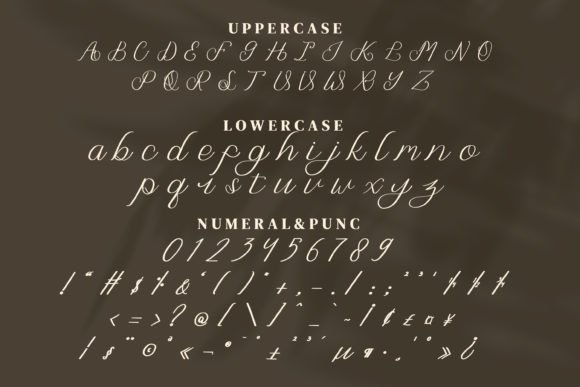 UPPERCASE
A B C D E F G H I J K L M N O
P Q R S T U V W X Y Z
LOWERCASE
a b c d e f g h i j k l m n o
p q r s t u v w x y z
NUMERAL&PUNC
0 1 2 3 4 5 6 7 8 9
! " # $ % & ' ( ) * + , - . / : ; ² ³ ¹
< = > ? @ [ \ ] ^ _ ` ~ ¡ ¢ £ ¤ ¥
¦ § ¨ © ª « ¬ ® ¯ ° ± ² ³ ´ µ ¶ • ¸ ¹ º » ¿